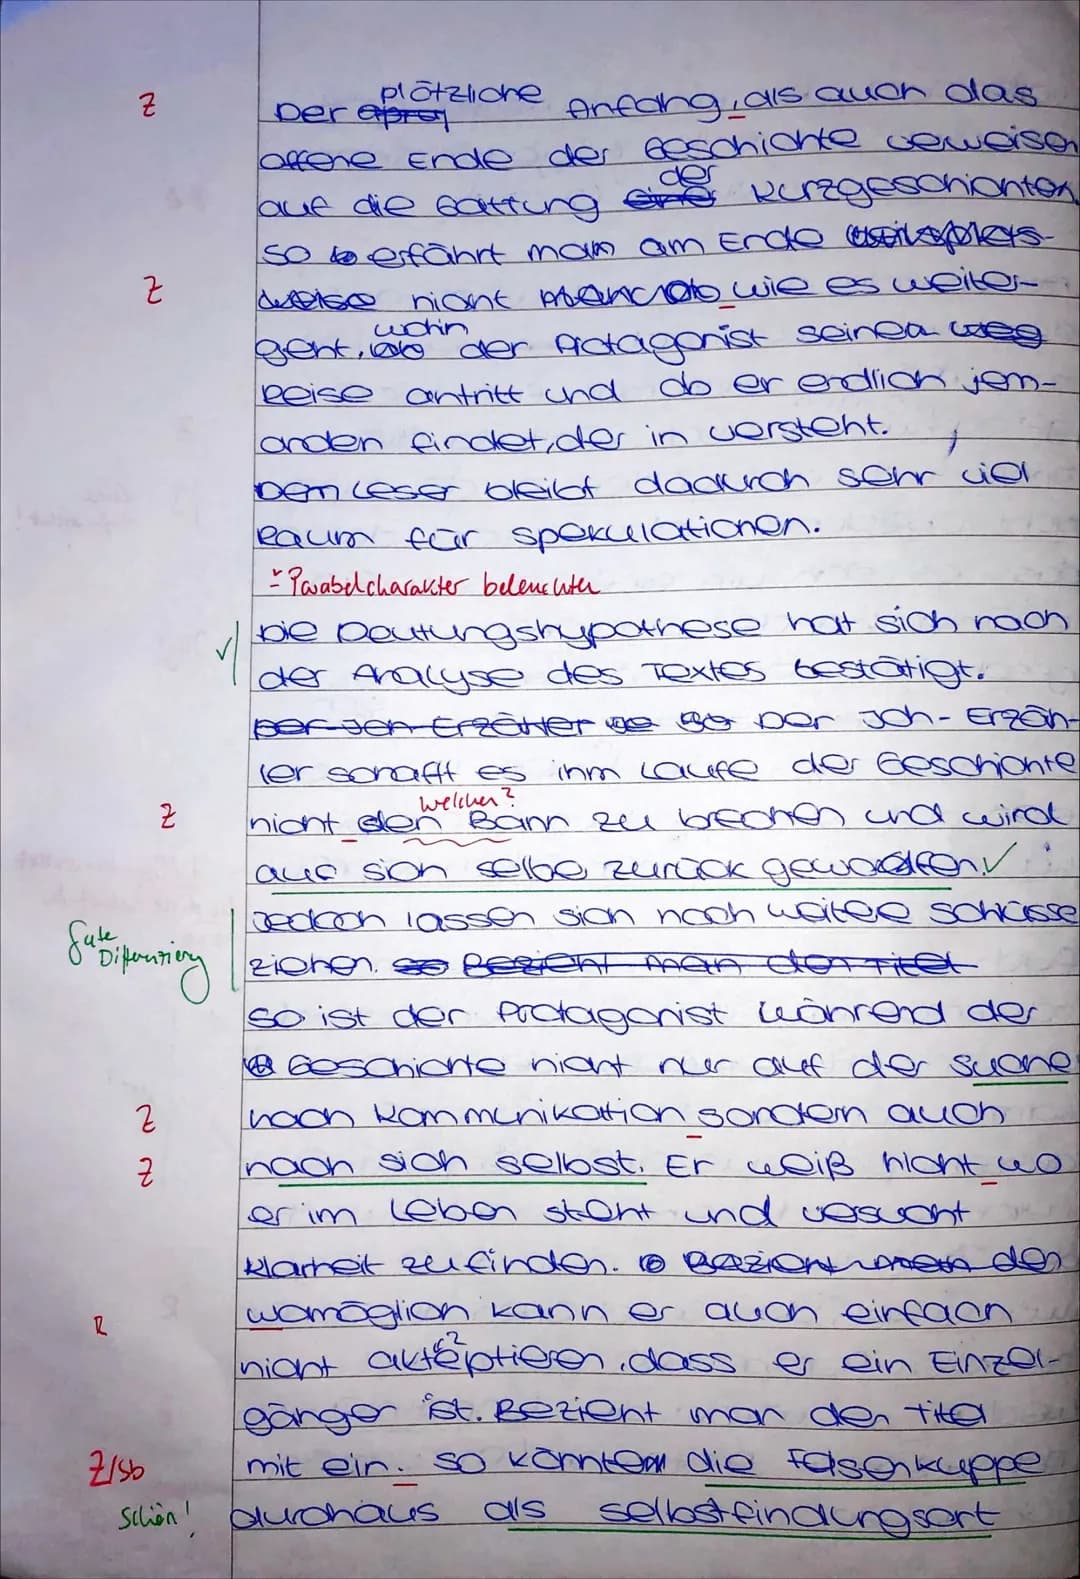 Z
plötzliche
Der Anfang, als auch das
offene Ende der Geschichte verweisen
auf die Gattung der Kurzgeschichten.
So erfährt man am Ende
Z
nicht wie es weiter-
geht, wohin der Protagonist seine
Reise antritt und ob er endlich jem-
anden findet, der in versteht.
Dem Leser bleibt dadurch sehr viel
Raum für Spekulationen.
- Parabelcharakter beleuchten
Die Deutungshypothese hat sich nach
der Analyse des Textes bestätigt.
Der Ich-Erzäh-
ler schafft es ihm Laufe der Geschichte
welchen?
Z
nicht den Bann zu brechen und wird
auf sich selbe zurück geworfen. ✓
Jedoch lassen sich noch weitere Schlüsse
Gute Differenzierg
ziehen. so Bezieht man den Titel
So ist der Protagonist während der
Geschichte nicht nur auf der Suche
Z
nach Kommunikation sondern auch
Z
nach sich selbst. Er weiß nicht wo
er im Leben steht und versucht
Klarheit zu finden. Bezieht man den
R
womöglich kann er auch einfach
nicht akteptieren, dass er ein Einzel-
gänger ist. Bezieht man den Titel
Z/Sb
mit ein. so könnte die Felsenkuppe
Schön!
durchaus als Selbstfindungsort